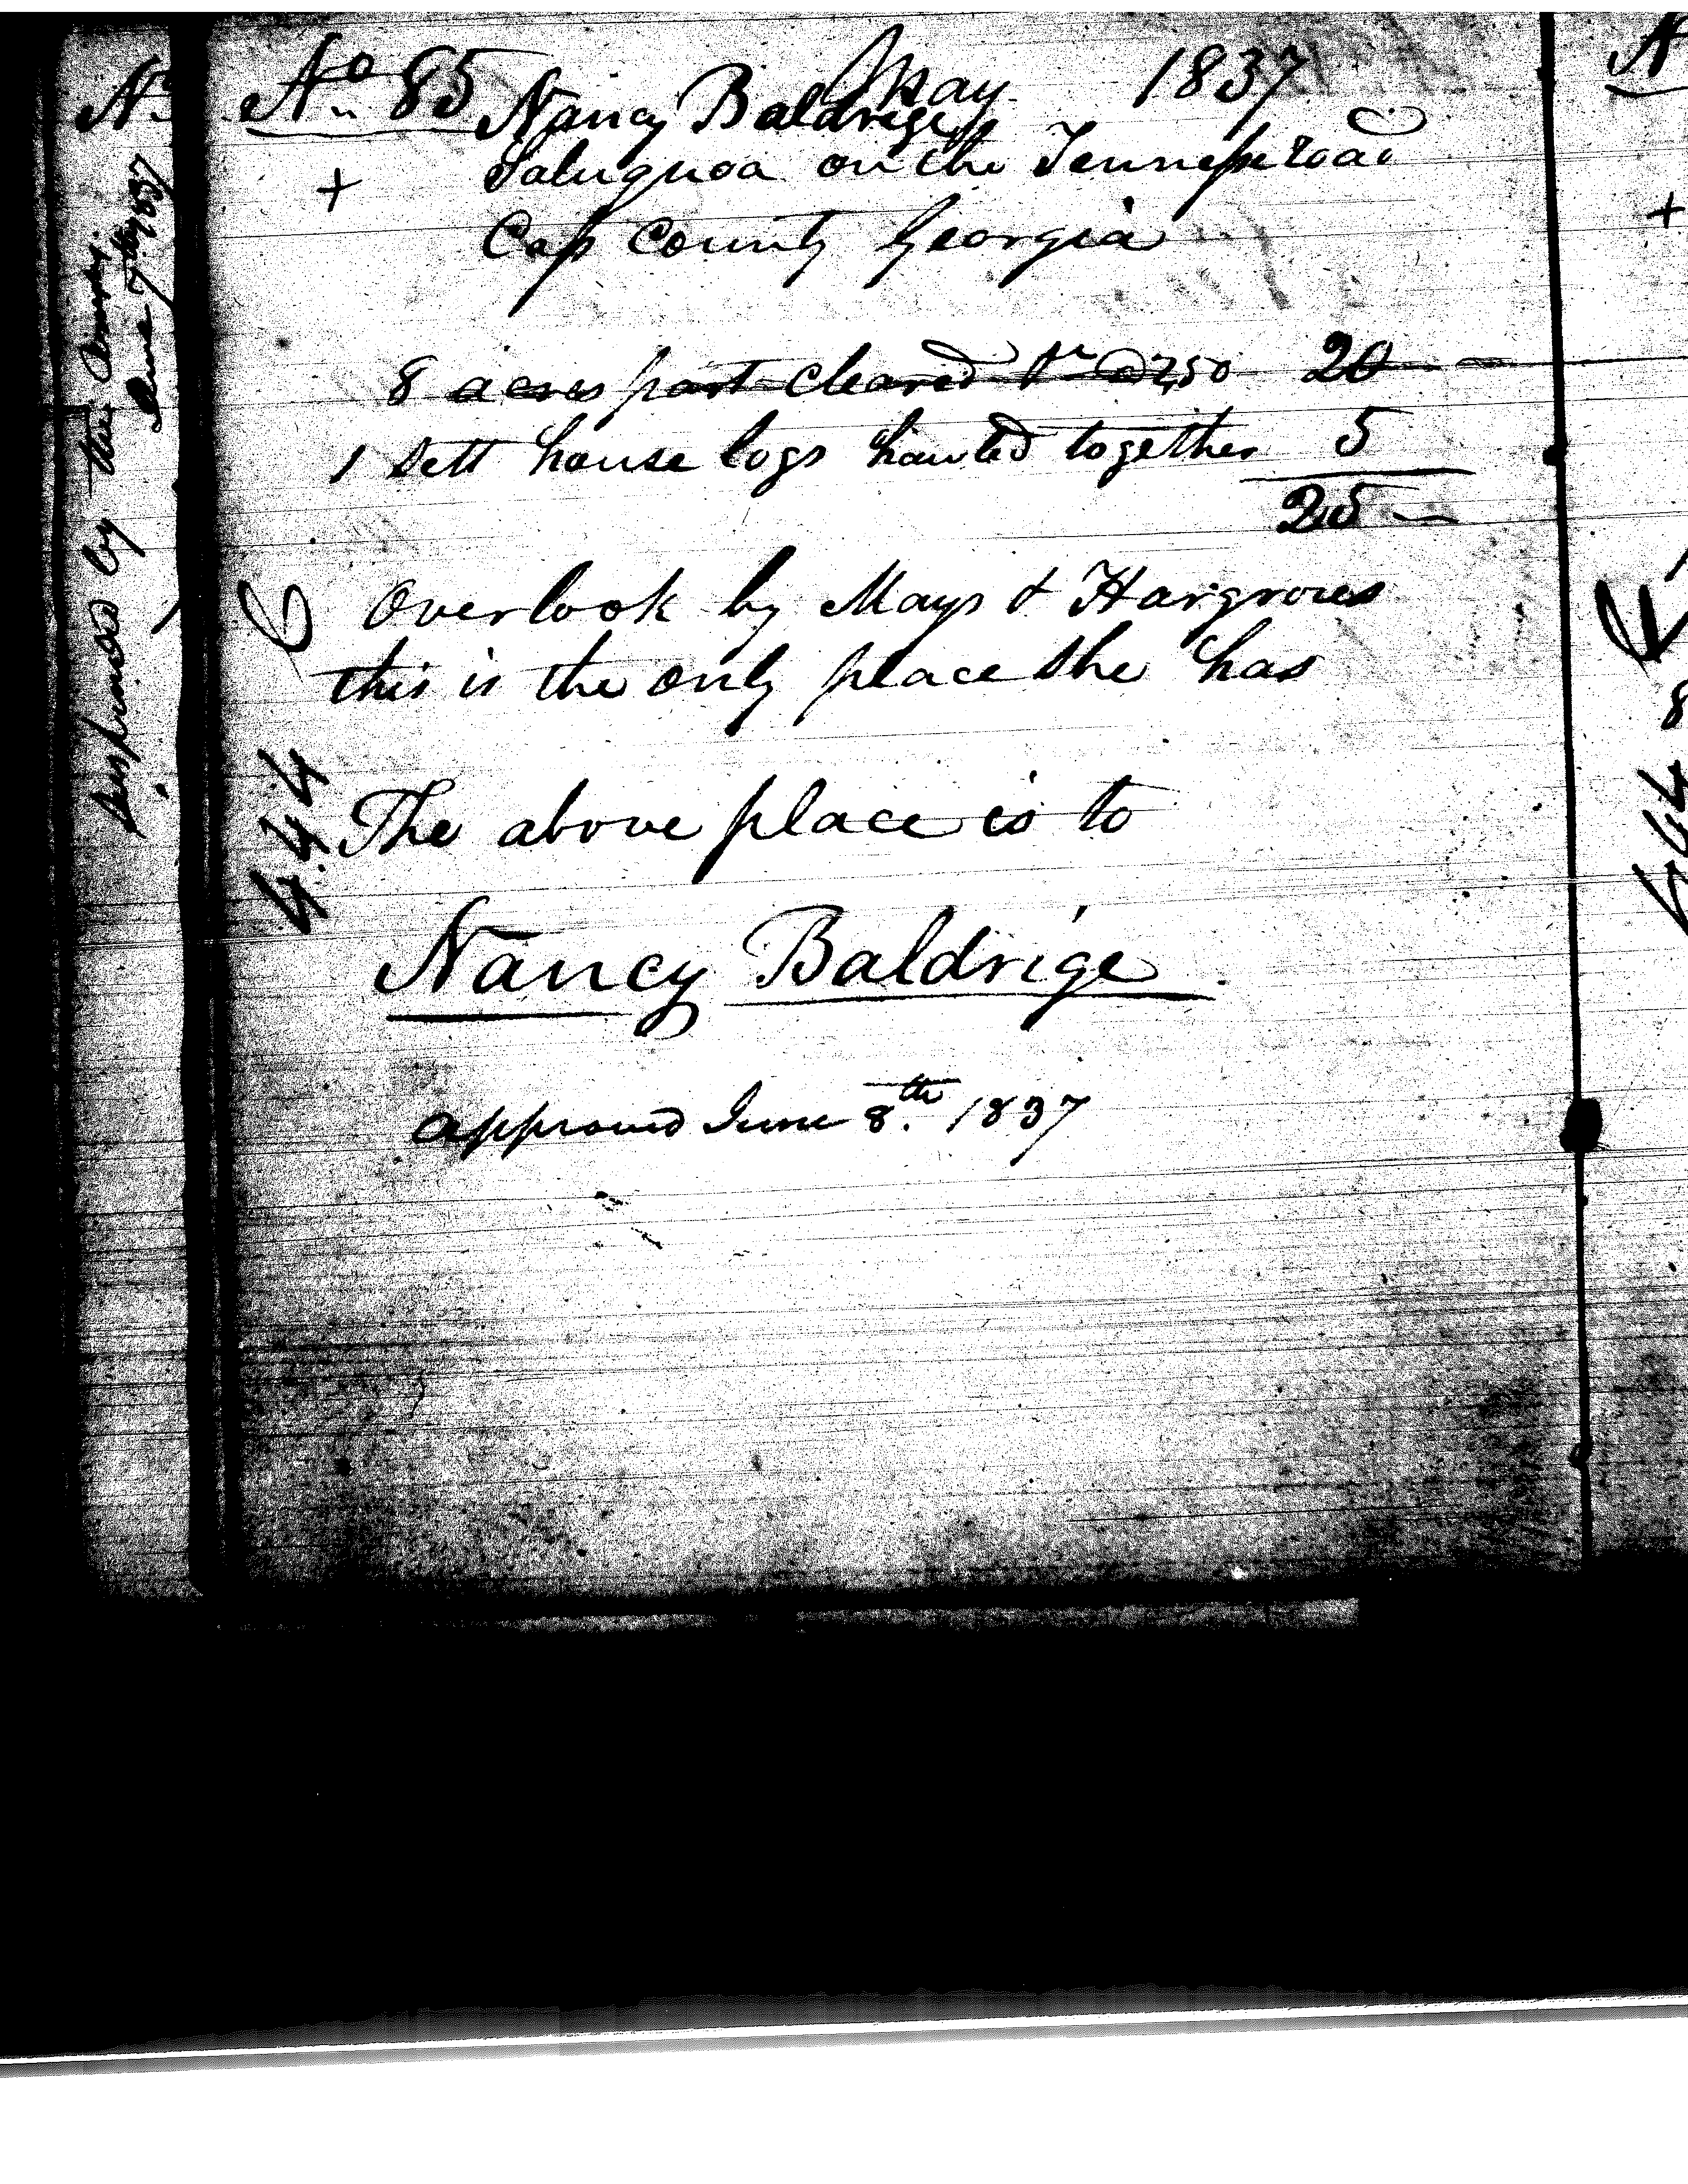 No 85 May 1837
Nancy Baldrige
+ Salugnoa on the Tennessee road
Cass County Georgia
8 acres part cleared @ 2,50 20
1 Sett house logs hauled together 5
25
Overlook by Mays & Hargroves
this is the only place she has
444
The above place is to
Nancy Baldrige
approved June 8th. 1837
by the
June 7th 1837